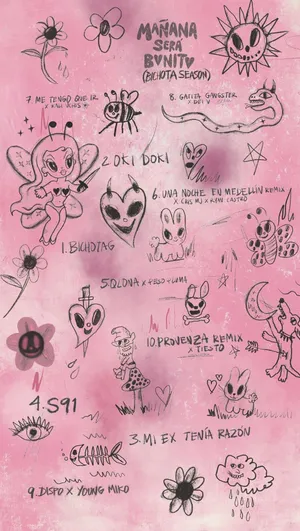 MAÑANA
SERÁ
BONITO
(BICHOTA SEASON)
7. ME TENGO QUE IR
x KALI UCHIS
8. GATITA GANGSTER
x DEI V
2 OKI DOKI
6. UNA NOCHE EN MEDELLÍN REMIX
x CRIS MJ x RYAN CASTRO
1. BICHOTAG
5. QLONA x PESO PLUMA
10. PROVENZA REMIX
x TIËSTO
4. S91
3. MI EX TENÍA RAZÓN
9. DISPO x YOUNG MIKO